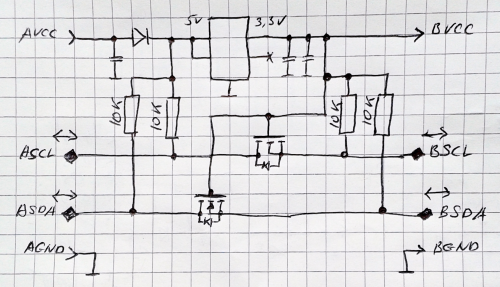 AVCC
5V
3,3V
BVCC
x
10K
10K
10K
10K
ASCL
BSCL
ASDA
BSDA
AGND
BGND